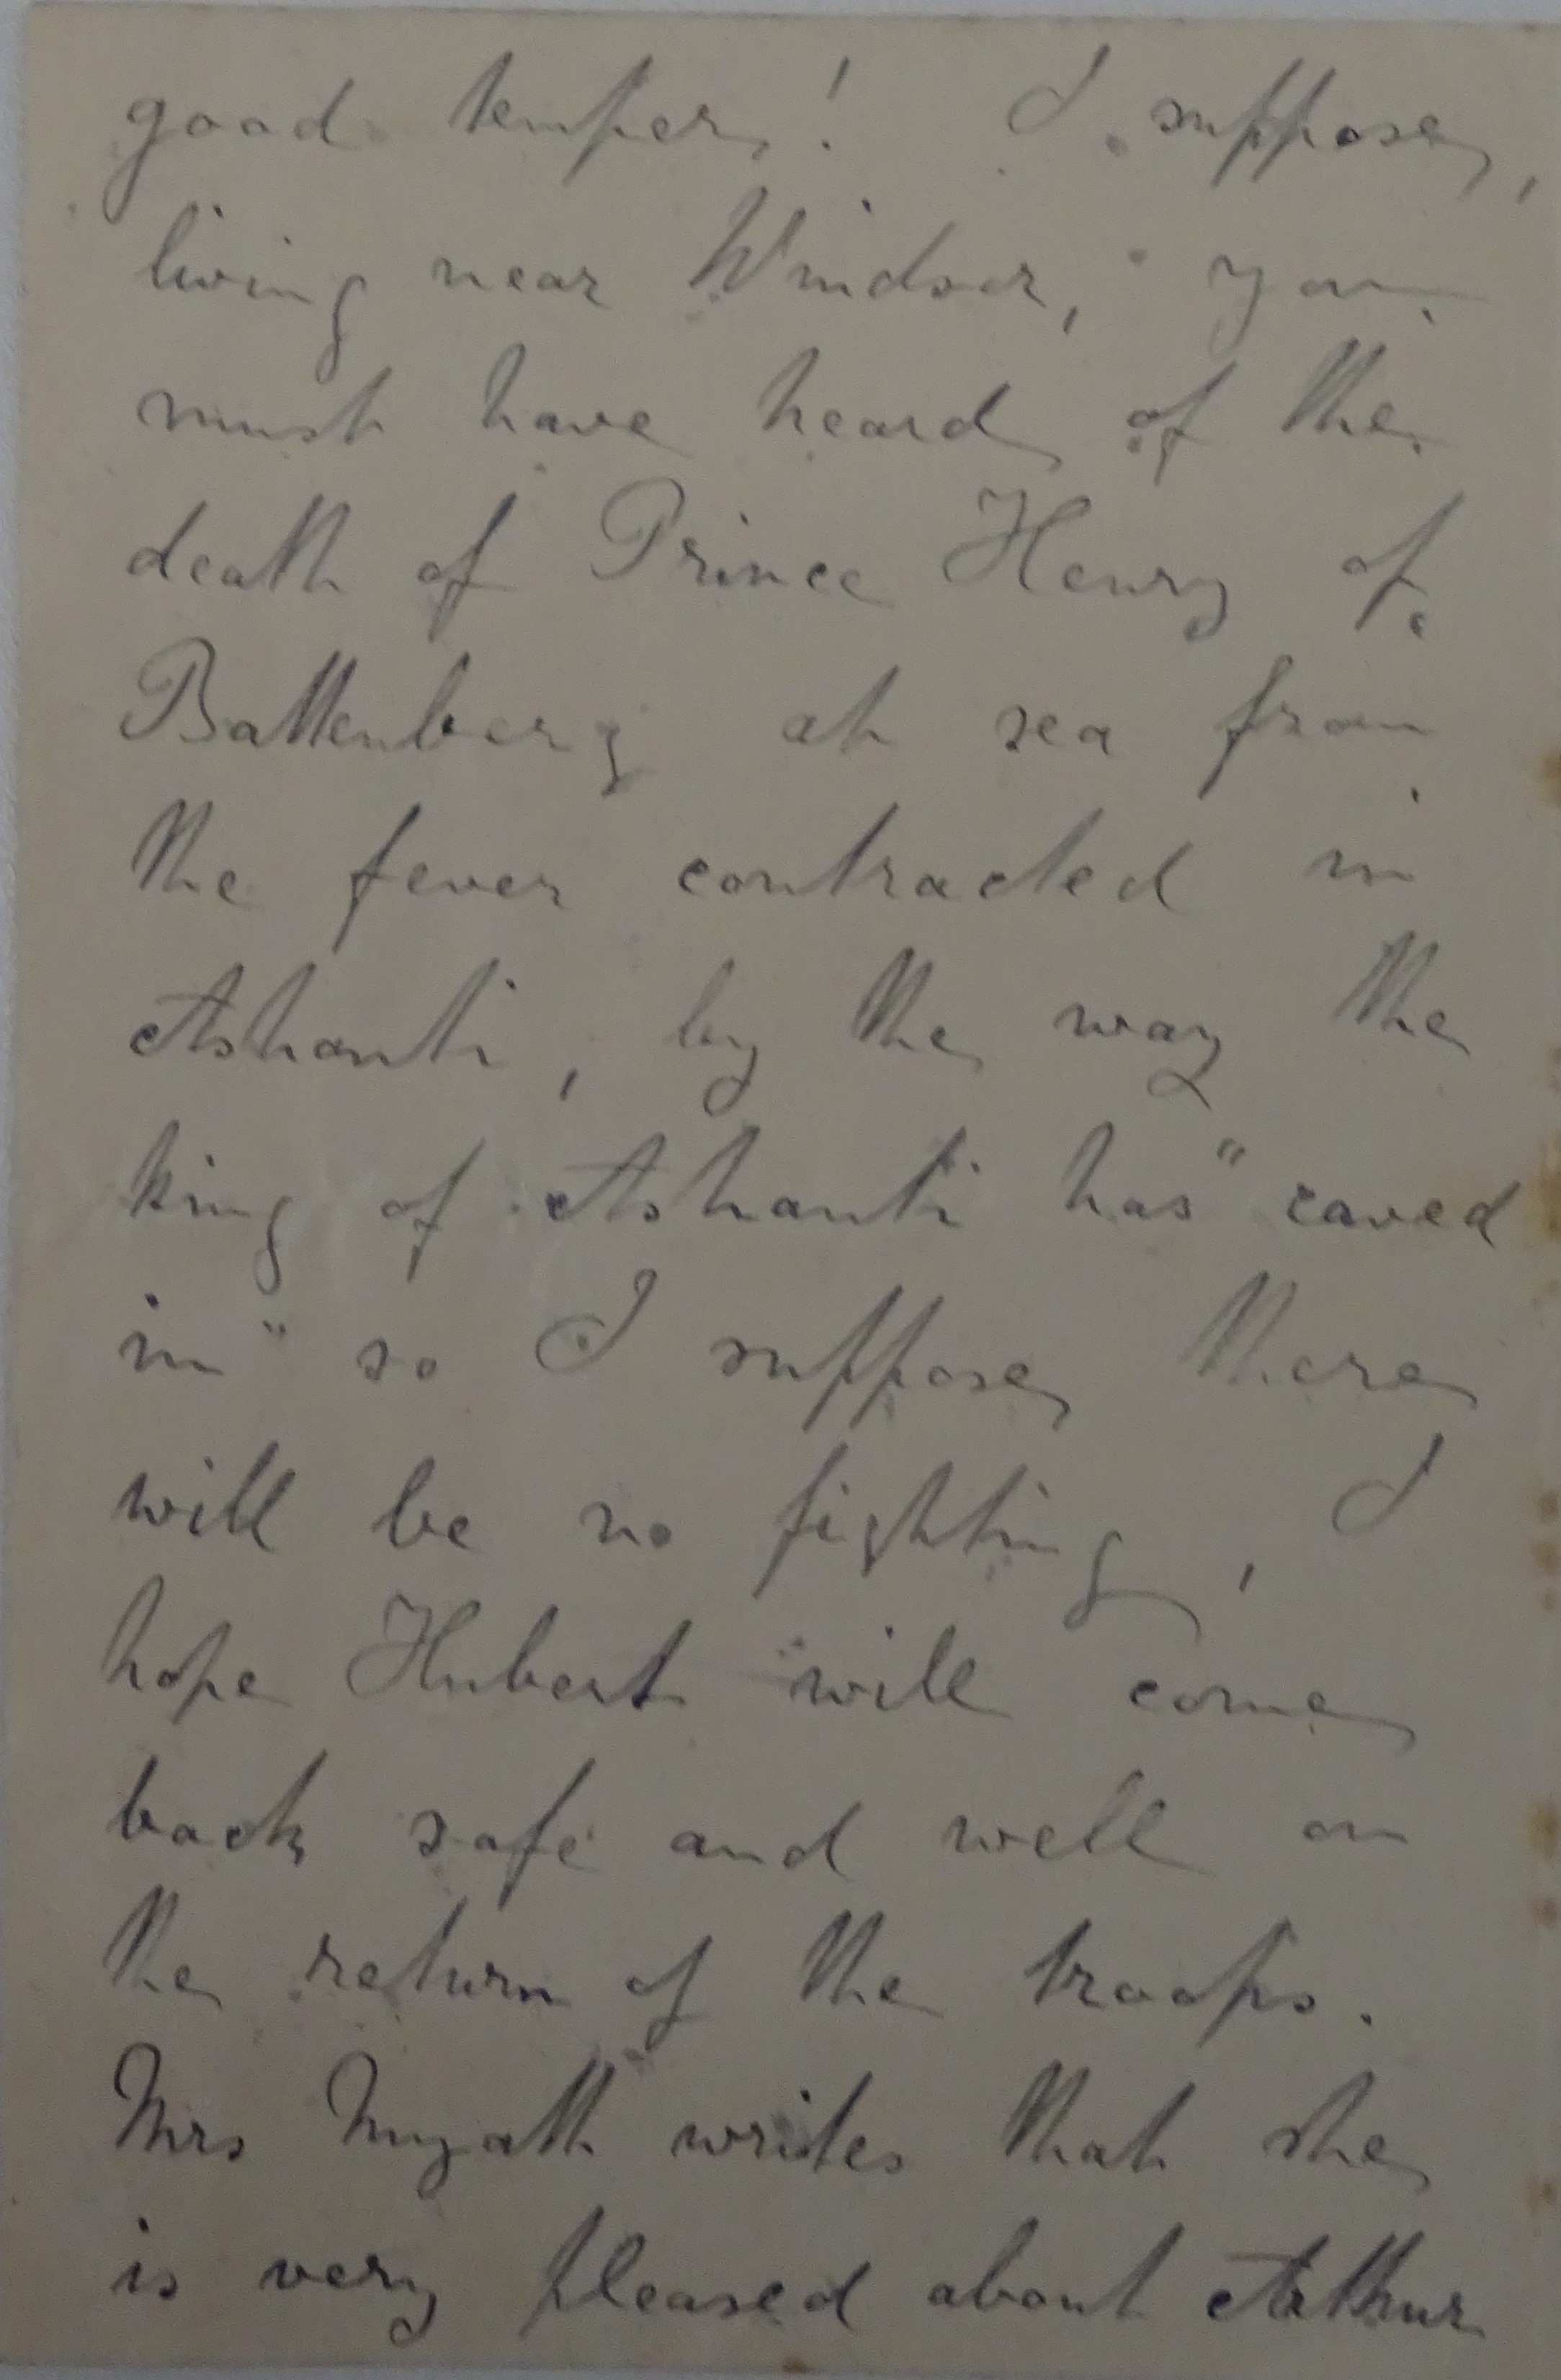 good temper! I suppose,
living near Windsor, you
must have heard of the
death of Prince Henry of
Battenberg at sea from
the fever contracted in
Ashanti, by the way the
king of Ashanti has "caved
in" so I suppose there
will be no fighting, I
hope Hubert will come
back safe and well on
the return of the troops.
Mrs Myatt writes that she
is very pleased about Arthur